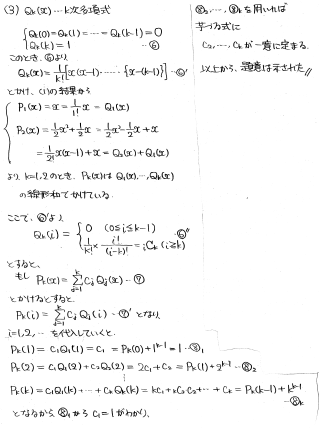 (3) Qₖ(x) … k次多項式
{ Qₖ(0) = Qₖ(1) = … = Qₖ(k-1) = 0
Qₖ(k) = 1 ⑥
このとき、⑥より
Qₖ(x) = 1/k! [x(x-1)……{x-(k-1)}] ⑥'
とかけ、(1)の結果から
{ P₁(x) = x = 1/1! x = Q₁(x)
P₂(x) = 1/2 x² + 1/2 x = 1/2 x² - 1/2 x + x
= 1/2! x(x-1) + x = Q₂(x) + Q₁(x)
より、k=1,2のとき、Pₖ(x)は Q₁(x),…,Qₖ(x)
の線形和でかけている.
ここで、⑥'より
Qₖ(i) = { 0 (0≤i≤k-1)
1/k! × i!/(i-k)! = ᵢCₖ (i≥k) ⑥''
とすると、
もし Pₖ(x) = Σ[j=1,k] Cⱼ Qⱼ(x) …⑦
とかけるとすると
Pₖ(i) = Σ[j=1,k] Cⱼ Qⱼ(i) …⑦' となり
i=1,2,… を代入していくと.
Pₖ(1) = C₁Q₁(1) = C₁ = Pₖ(0) + 1ᵏ⁻¹ = 1 …⑧₁
Pₖ(2) = C₁Q₁(2) + C₂Q₂(2) = 2C₁ + C₂ = Pₖ(1) + 2ᵏ⁻¹ …⑧₂
⋮
Pₖ(k) = C₁Q₁(k) + … + CₖQₖ(k) = kC₁ + ₖC₂C₂ + … + Cₖ = Pₖ(k-1) + kᵏ⁻¹
…⑧ₖ
となるから ⑧₁から C₁=1がわかり、
⑧₂,…,⑧ₖを用いれば
芋づる式に
C₂,…,Cₖが一意に定まる.
以上から、題意は示された //